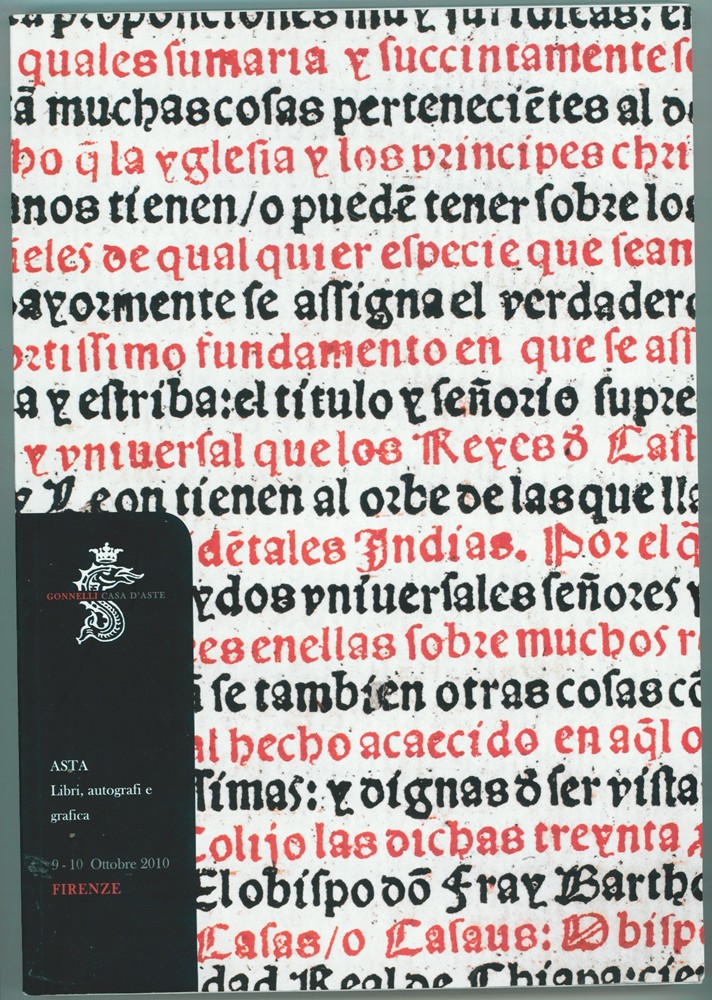 proposiciones muy juridicas: e
quales sumaria y succintamente se
ã muchas cosas perteneciẽtes al de
ho q̃ la yglesia y los principes chri
nos tienen/o puedẽ tener sobre los
ieles de qual quier especie que sean
ayormente se assigna el verdadero
ortissimo fundamento en que se ass
a y estriba: el titulo y señorio supre
y vniuersal que los Reyes ð Cast
y Leon tienen al orbe de las que lla
idẽtales Indias. Por el q̃
ydos vniuersales señores y
es en ellas sobre muchos r
ã se tambien otras cosas cõ
al hecho acaecido en aq̃l o
ssimas: y dignas ð ser vista
Colijo las dichas treynta
El obispo dõ Fray Bartho
Casas/o Casaus: Obispo
dad Real de Chiapa: cier
GONNELLI CASA D'ASTE
ASTA
Libri, autografi e
grafica
9 - 10 Ottobre 2010
FIRENZE